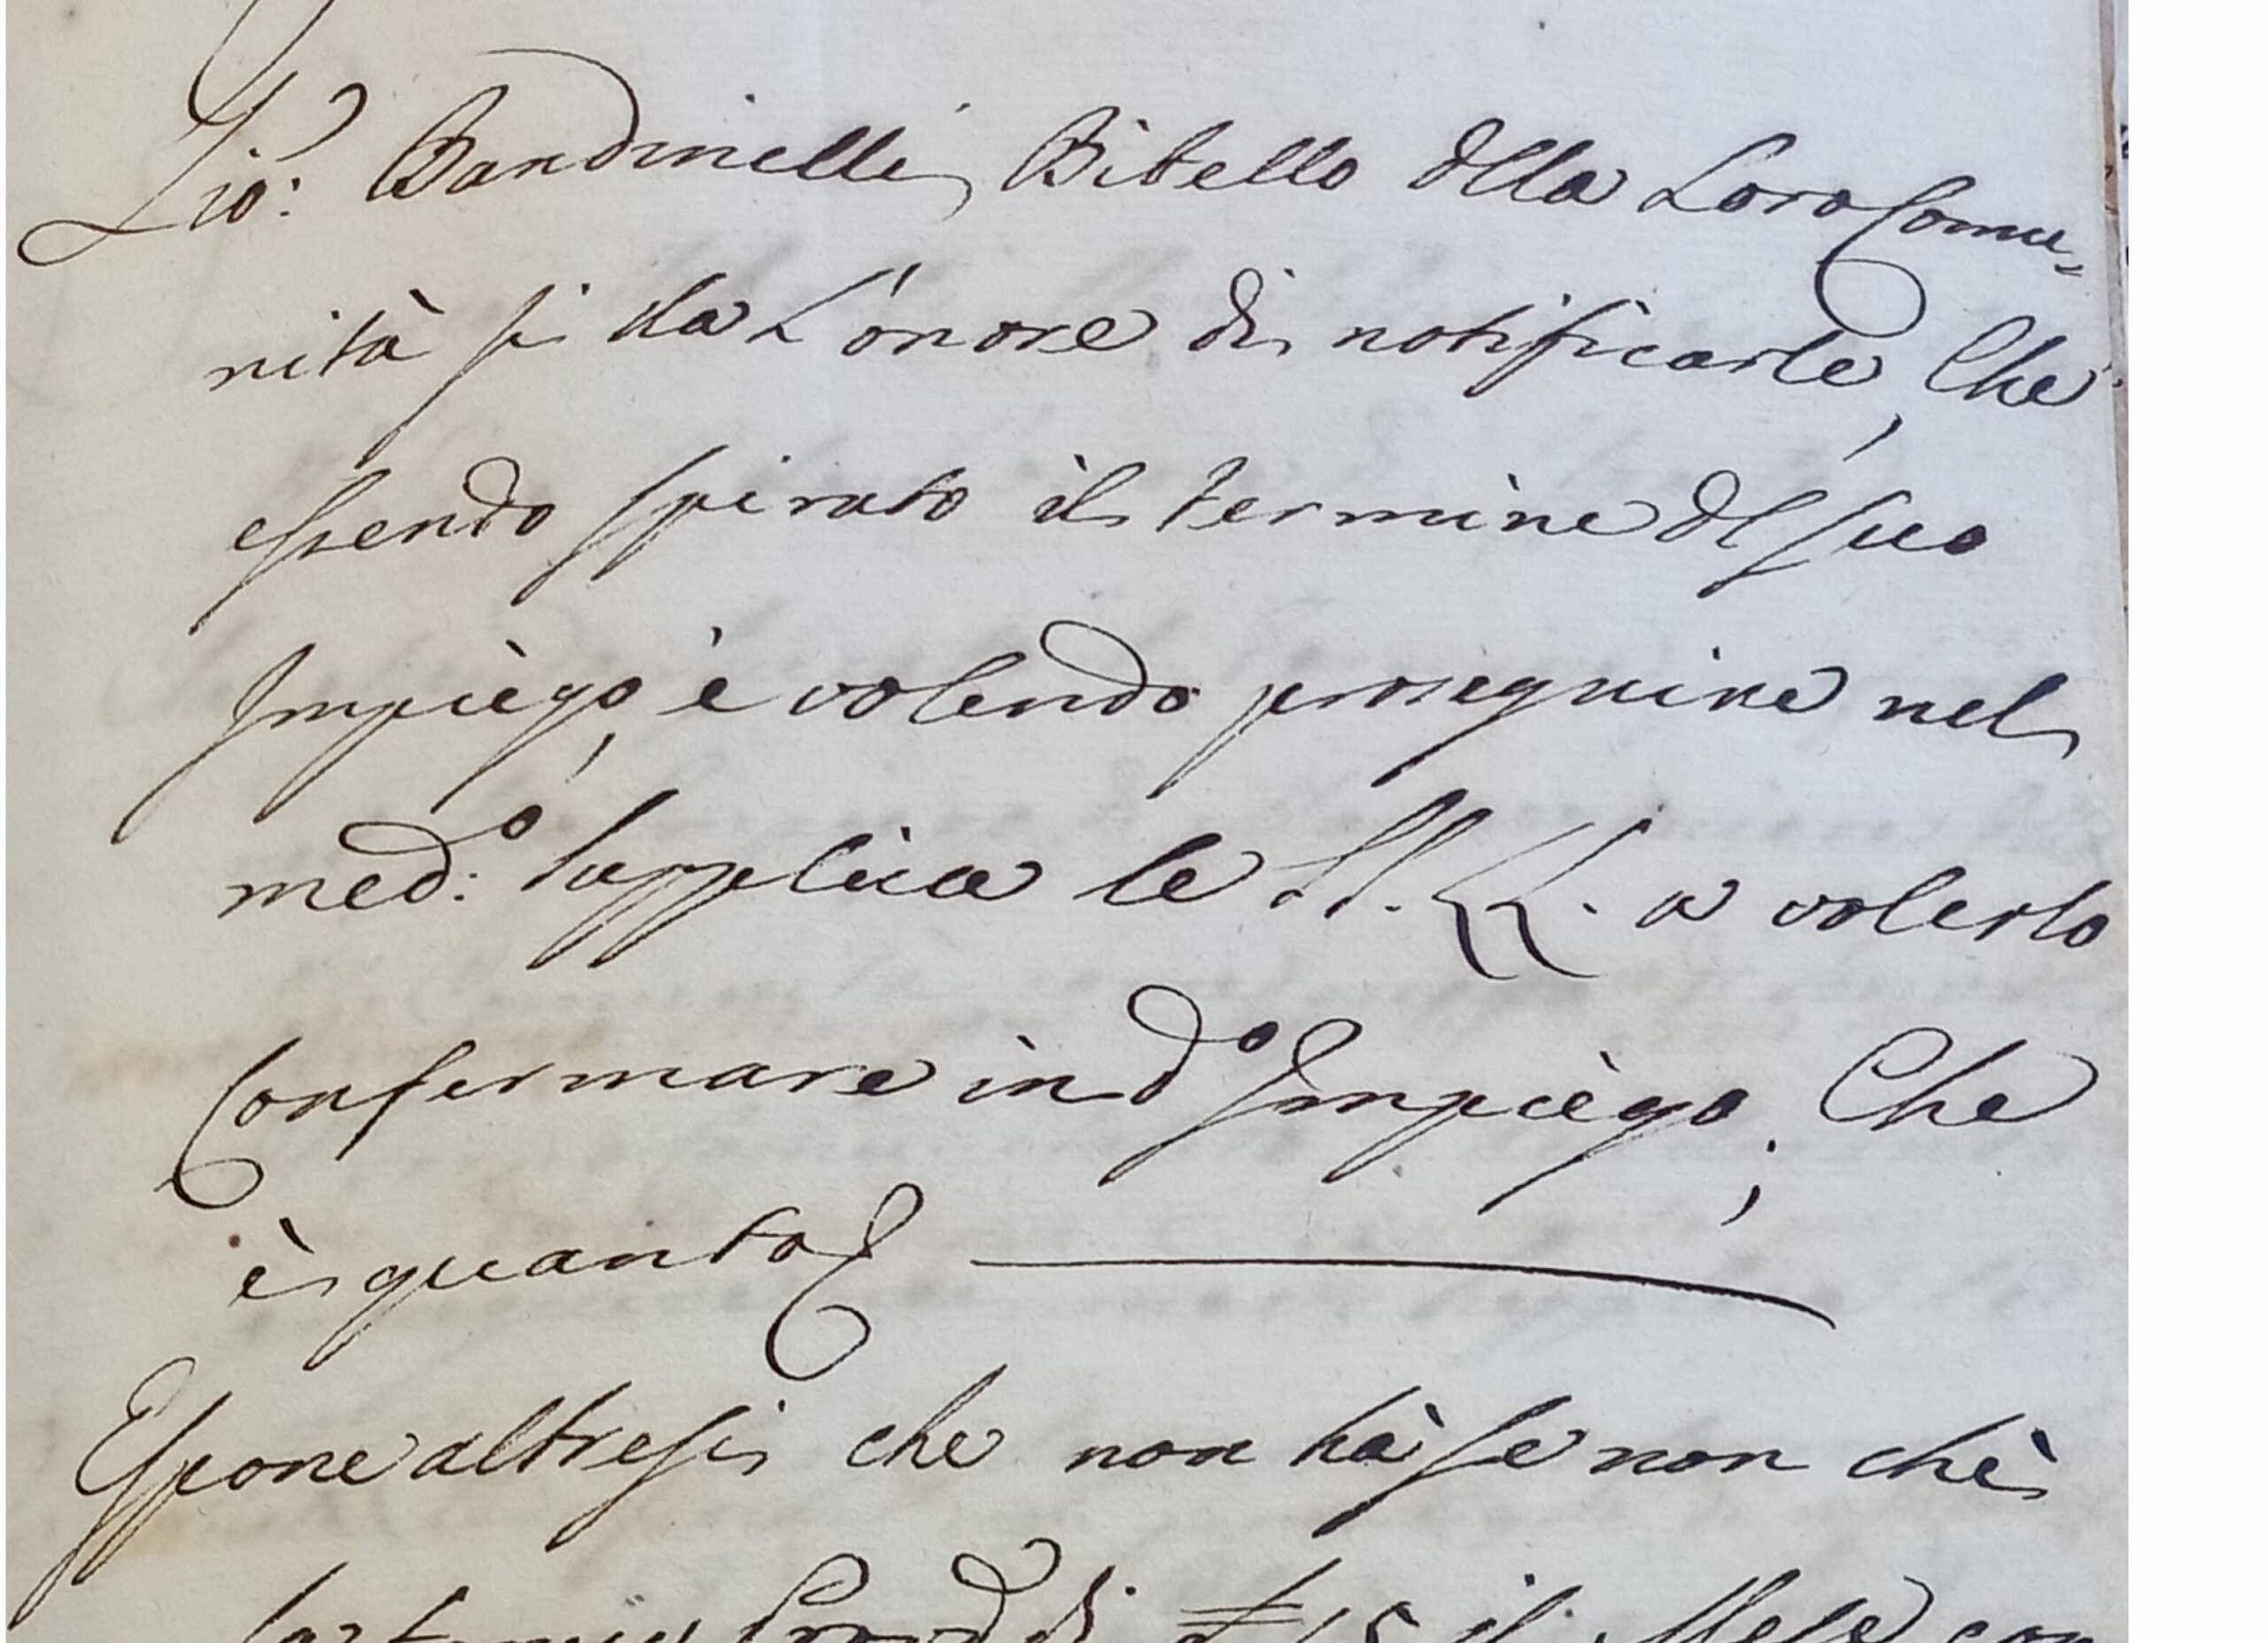 Gio: Bandinelli Bidello dlla Loro Comu=
nità si da L'onore di notificarle, Che
essendo spirato il termine dl suo
Impiègo, è volendo proseguire nel
med:o supplica le SS. LL. a volerlo
Confermare in do Impiègo; Che
è quanto
Espone altresi che non hà se non chè
il Mese con